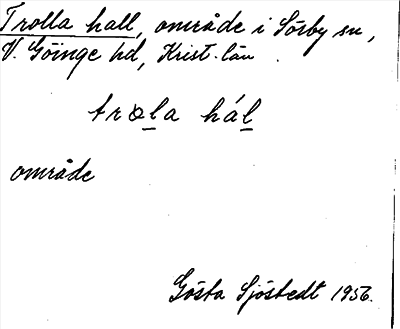 Trolla hall, område i Sörby sn,
V. Göinge hd, Krist. län
trola hál
område
Gösta Sjöstedt 1956.